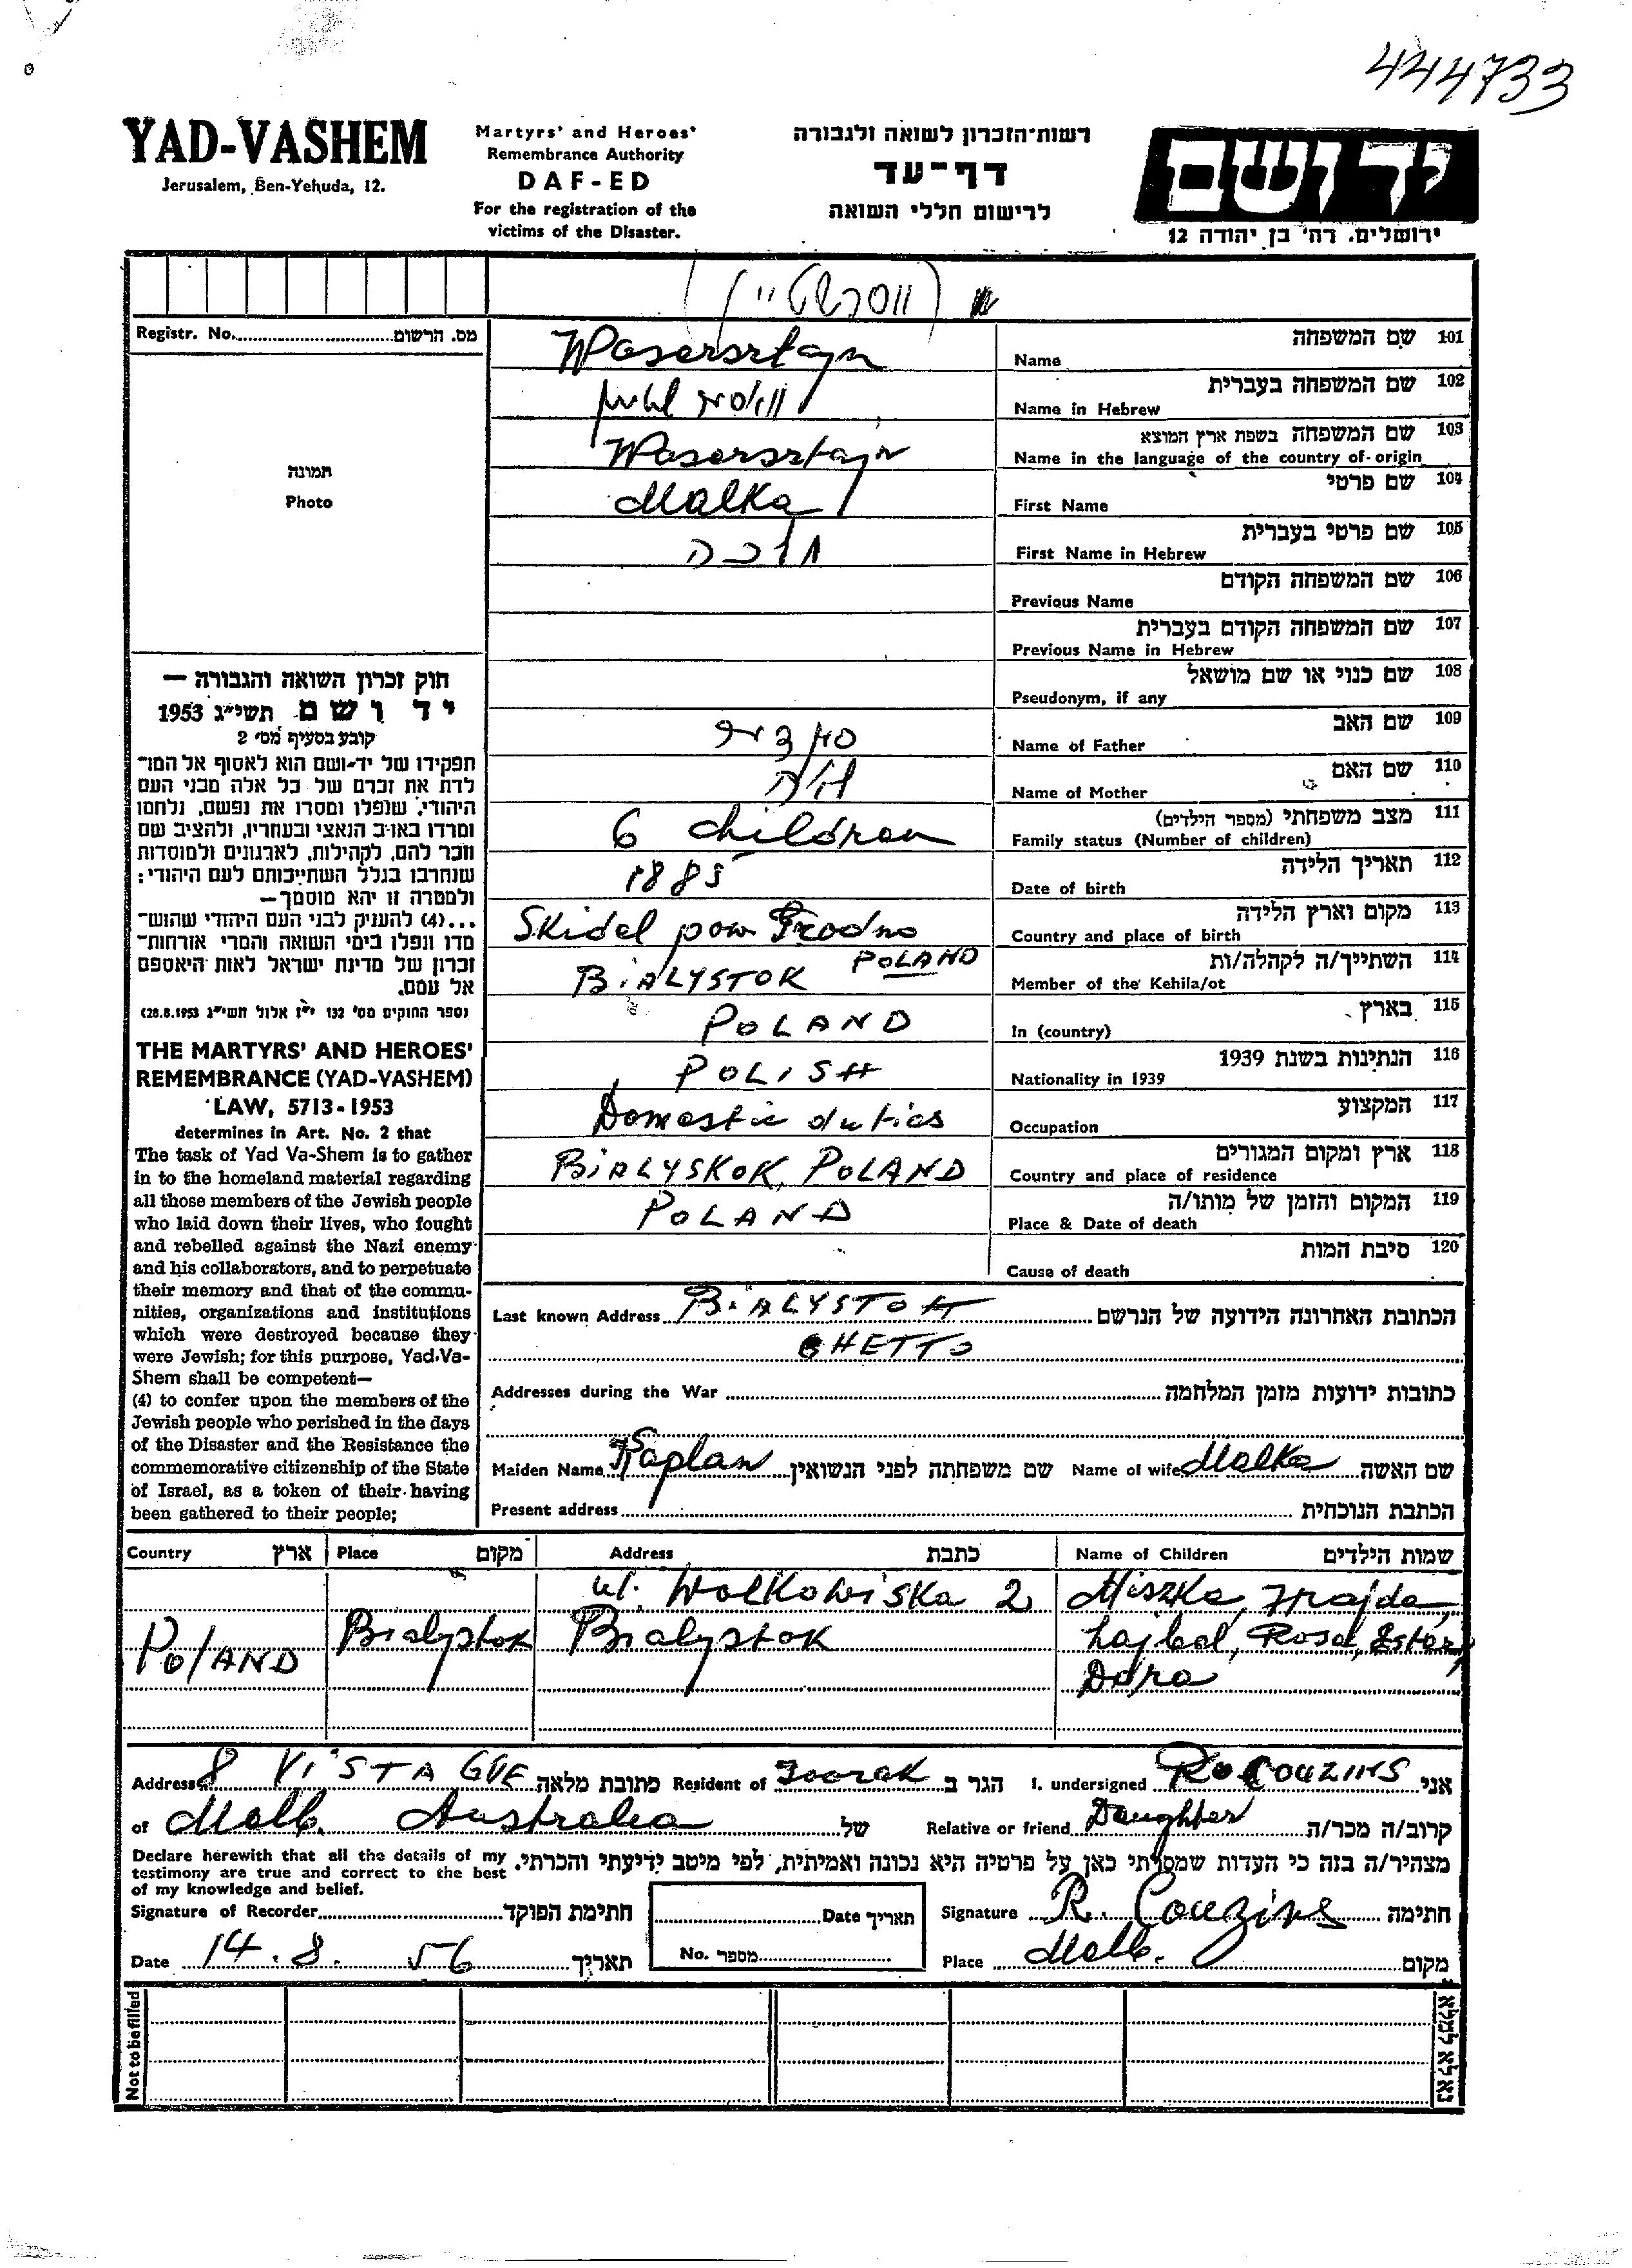 444733
YAD-VASHEM
Jerusalem, Ben-Yehuda, 12.
Martyrs' and Heroes'
Remembrance Authority
DAF-ED
For the registration of the
victims of the Disaster.
רשות־הזכרון לשואה ולגבורה
דף־עד
לרישום חללי השואה
ידושם
ירושלים, רח' בן יהודה 12
Registr. No. מס. הרשום
תמונה
Photo
חוק זכרון השואה והגבורה —
יד ושם תשי״ג 1953
קובע בסעיף מס׳ 2
תפקידו של יד-ושם הוא לאסוף אל המו־
לדת את זכרם של כל אלה מבני העם
היהודי, שנפלו ומסרו את נפשם, נלחמו
ומרדו באויב הנאצי ובעוזריו, ולהציב שם
וזכר להם, לקהילות, לארגונים ולמוסדות
שנחרבו בגלל השתייכותם לעם היהודי;
ולמטרה זו יהא מוסמך—
...(4) להעניק לבני העם היהודי שהוש־
מדו ונפלו בימי השואה והמרי אזרחות־
זכרון של מדינת ישראל לאות היאספם
אל עמם.
(ספר החוקים מס' 132 י״ז אלול תשי״ג 28.8.1953)
THE MARTYRS' AND HEROES'
REMEMBRANCE (YAD-VASHEM)
LAW, 5713-1953
determines in Art. No. 2 that
The task of Yad Va-Shem is to gather
in to the homeland material regarding
all those members of the Jewish people
who laid down their lives, who fought
and rebelled against the Nazi enemy
and his collaborators, and to perpetuate
their memory and that of the commu-
nities, organizations and institutions
which were destroyed because they
were Jewish; for this purpose, Yad-Va-
Shem shall be competent—
(4) to confer upon the members of the
Jewish people who perished in the days
of the Disaster and the Resistance the
commemorative citizenship of the State
of Israel, as a token of their having
been gathered to their people;
Wasersrtajn Name שם המשפחה 101
Name in Hebrew שם המשפחה בעברית 102
Wasersrtajn Name in the language of the country of origin שם המשפחה בשפת ארץ המוצא 103
Malka First Name שם פרטי 104
מלכה First Name in Hebrew שם פרטי בעברית 105
Previous Name שם המשפחה הקודם 106
Previous Name in Hebrew שם המשפחה הקודם בעברית 107
Pseudonym, if any שם כנוי או שם מושאל 108
Name of Father שם האב 109
חיה Name of Mother שם האם 110
6 children Family status (Number of children) מצב משפחתי (מספר הילדים) 111
1885 Date of birth תאריך הלידה 112
Skidel pow Grodno POLAND Country and place of birth מקום וארץ הלידה 113
BiALYSTOK Member of the Kehila/ot השתייך/ה לקהלה/ות 114
POLAND In (country) בארץ 115
POLISH Nationality in 1939 הנתינות בשנת 1939 116
Domestic duties Occupation המקצוע 117
BiALYSKOK, POLAND Country and place of residence ארץ ומקום המגורים 118
POLAND Place & Date of death המקום והזמן של מותו/ה 119
Cause of death סיבת המות 120
Last known Address BiALYSTOK הכתובת האחרונה הידועה של הנרשם
GHETTO
Addresses during the War כתובות ידועות מזמן המלחמה
Maiden Name Kaplan שם משפחתה לפני הנשואין Name of wife Malka שם האשה
Present address הכתבת הנוכחית
Country ארץ Place מקום Address כתבת Name of Children שמות הילדים
ul. Wolkowiska 2 Miszka,
Poland Bialystok Bialystok Lajbel, Rosa, Ester,
Dora
Address 8 ViSTA GVE כתובת מלאה Resident of Toorak הגר ב I. undersigned R. COUZINS אני
of Melb. Australia של Relative or friend Daughter קרוב/ה מכר/ה
Declare herewith that all the details of my
testimony are true and correct to the best
of my knowledge and belief.
מצהיר/ה בזה כי העדות שמסרתי כאן על פרטיה היא נכונה ואמיתית, לפי מיטב ידיעתי והכרתי.
Signature of Recorder חתימת הפוקד Date תאריך Signature R. Couzins חתימה
Date 14.8.56 תאריך No. מספר Place Melb. מקום
Not to be filled
נא לא למלא